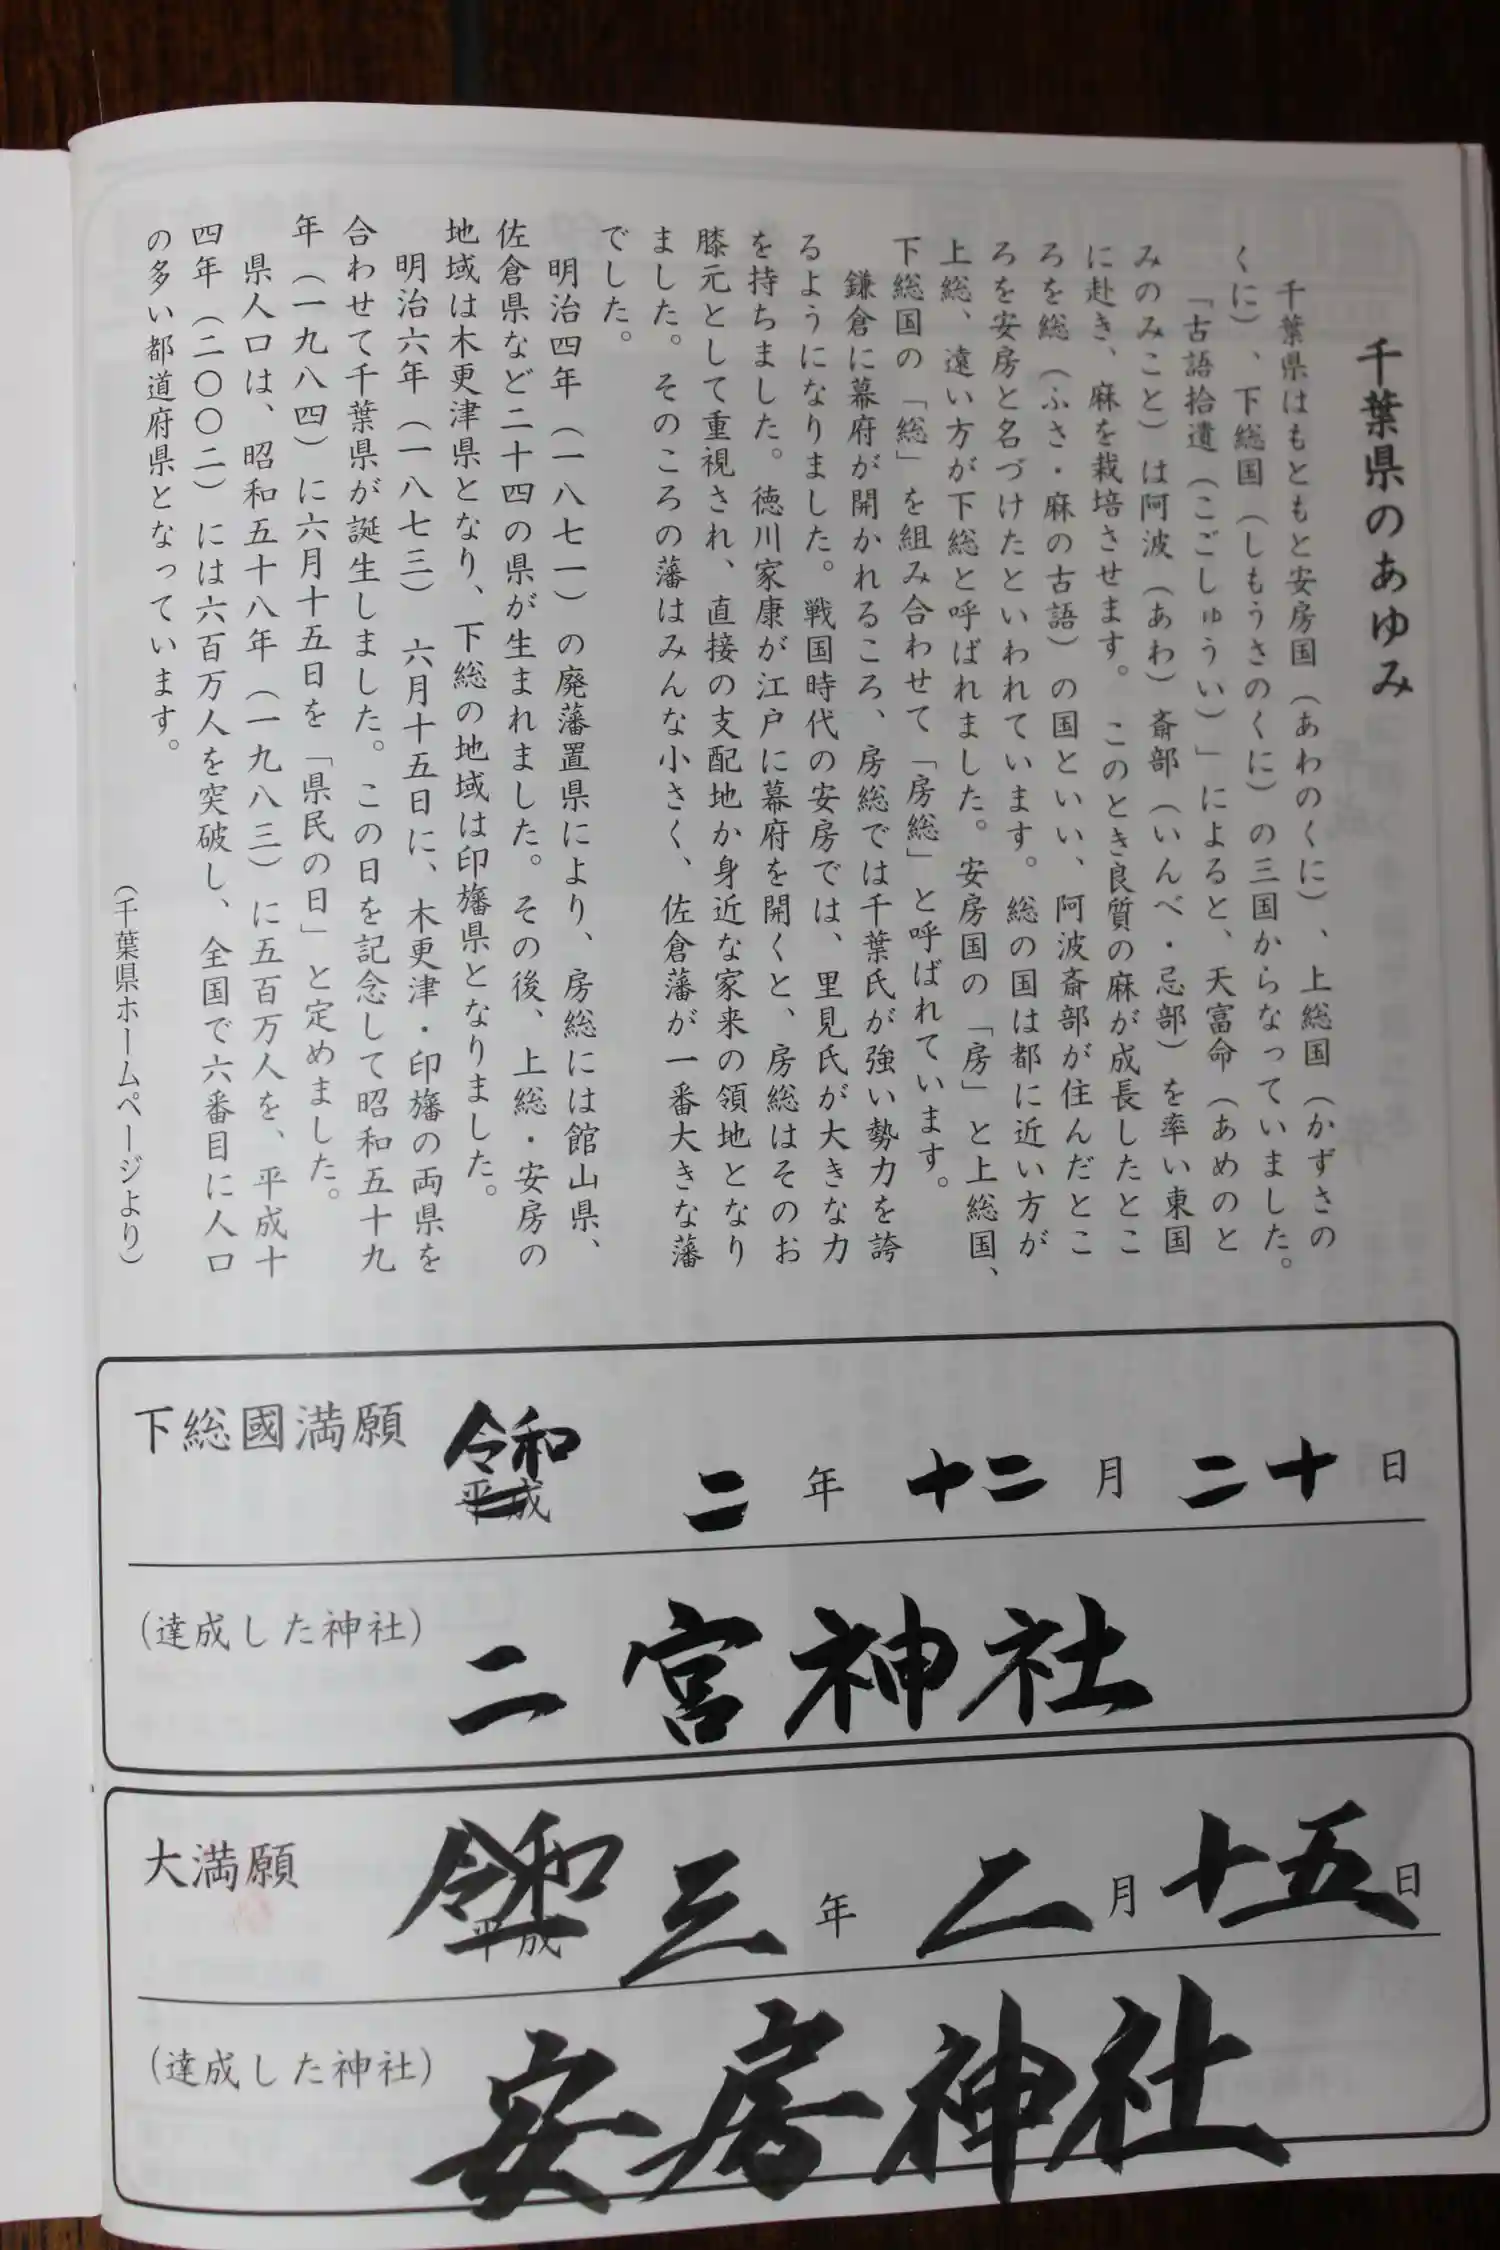 千葉県のあゆみ
千葉県はもともと安房国（あわのくに）、上総国（かずさの
くに）、下総国（しもうさのくに）の三国からなっていました。
「古語拾遺（こごしゅうい）」によると、天富命（あめのと
みのみこと）は阿波（あわ）斎部（いんべ・忌部）を率い東国
に赴き、麻を栽培させます。このとき良質の麻が成長したとこ
ろを総（ふさ・麻の古語）の国といい、阿波斎部が住んだとこ
ろを安房と名づけたといわれています。総の国は都に近い方が
上総、遠い方が下総と呼ばれました。安房国の「房」と上総国、
下総国の「総」を組み合わせて「房総」と呼ばれています。
鎌倉に幕府が開かれるころ、房総では千葉氏が強い勢力を誇
るようになりました。戦国時代の安房では、里見氏が大きな力
を持ちました。徳川家康が江戸に幕府を開くと、房総はそのお
膝元として重視され、直接の支配地か身近な家来の領地となり
ました。そのころの藩はみんな小さく、佐倉藩が一番大きな藩
でした。
明治四年（一八七一）の廃藩置県により、房総には館山県、
佐倉県など二十四の県が生まれました。その後、上総・安房の
地域は木更津県となり、下総の地域は印旛県となりました。
明治六年（一八七三）　六月十五日に、木更津・印旛の両県を
合わせて千葉県が誕生しました。この日を記念して昭和五十九
年（一九八四）に六月十五日を「県民の日」と定めました。
県人口は、昭和五十八年（一九八三）に五百万人を、平成十
四年（二〇〇二）には六百万人を突破し、全国で六番目に人口
の多い都道府県となっています。
（千葉県ホームページより）
下総國満願 令和 平成 二 年 十二 月 二十 日
（達成した神社） 二宮神社
大満願 令和 平成 三 年 二 月 十五 日
（達成した神社） 安房神社